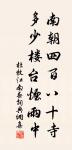 南朝四百八十寺
多少楼台烟雨中
杜牧江南春诗典网集